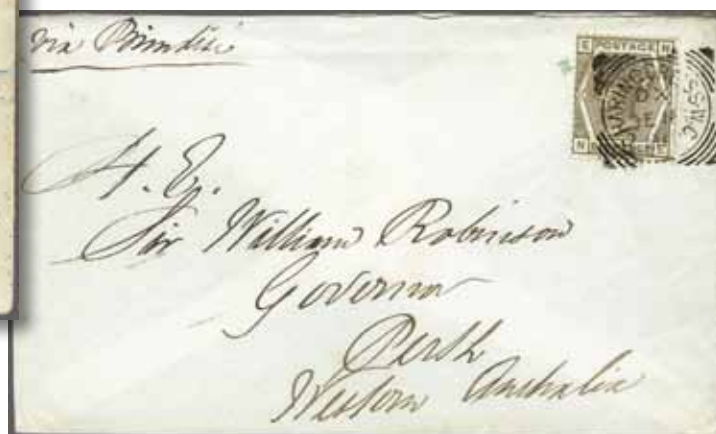 via Brindisi
E POSTAGE N
H. E.
Sir William Robinson
Governor
Perth
Western Australia